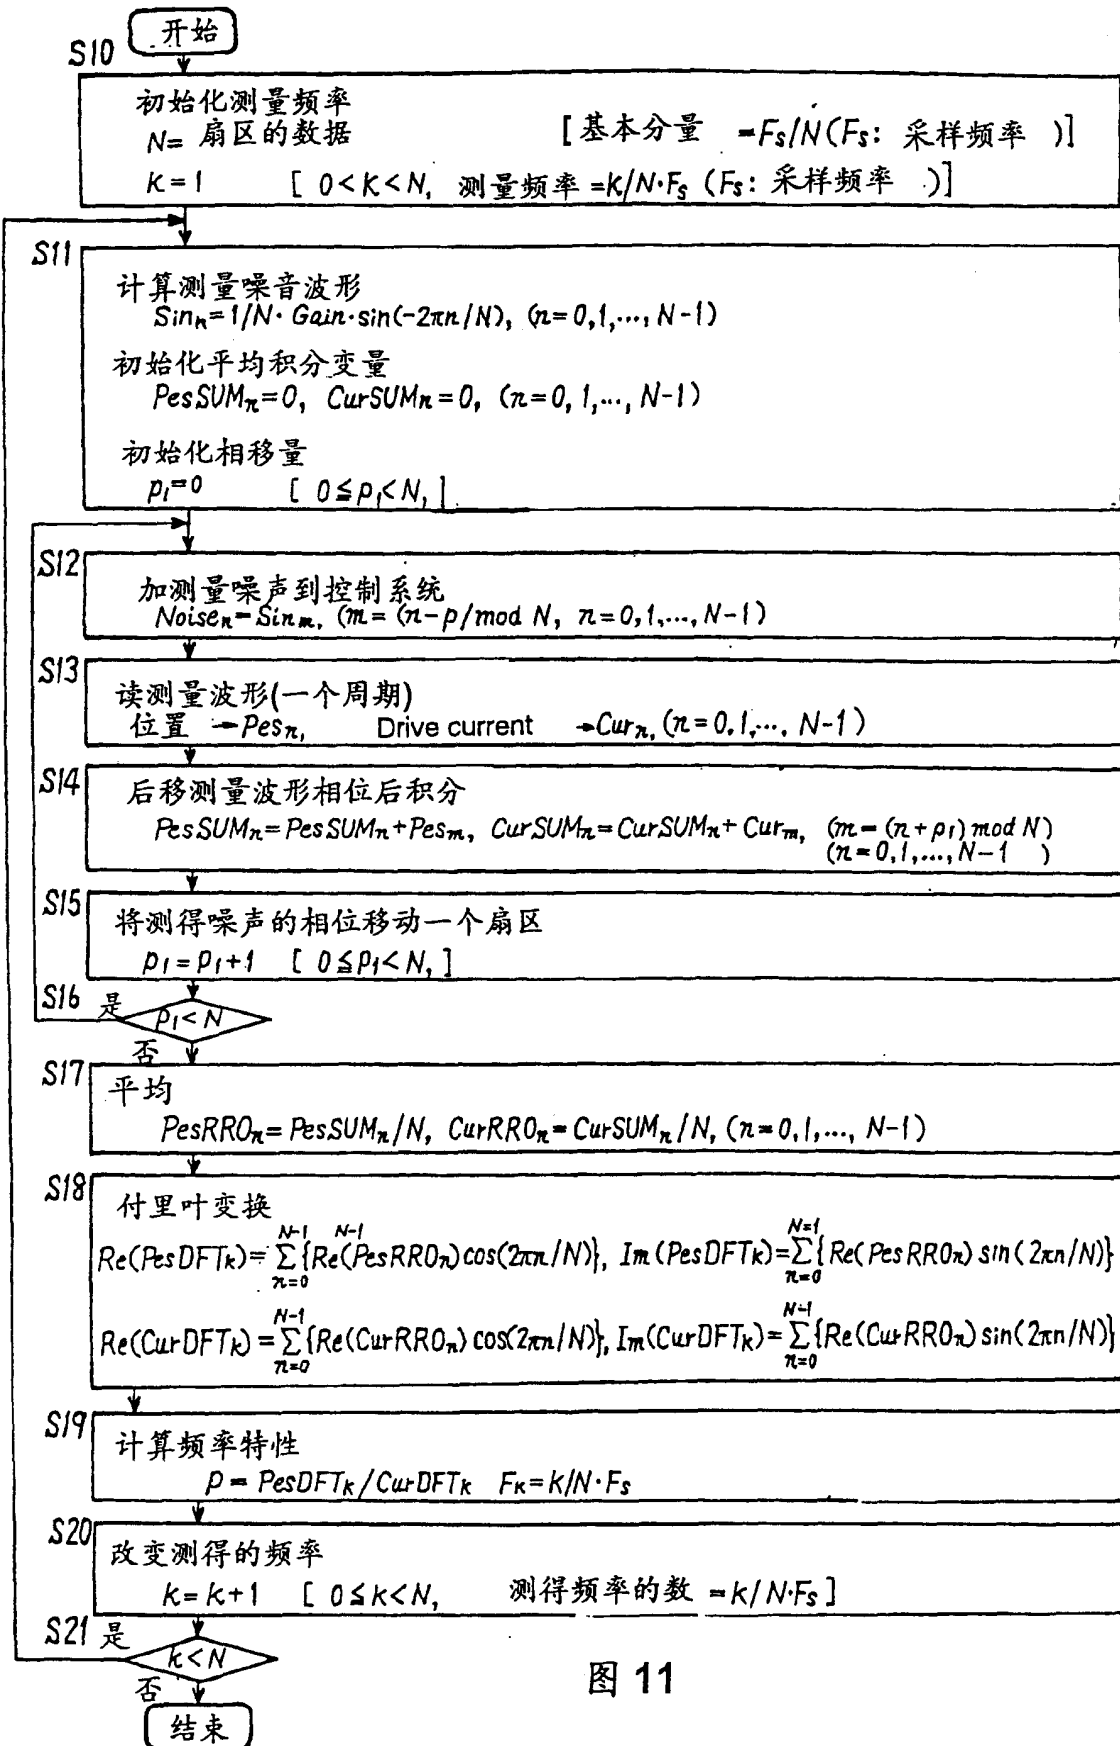 开始
S10
初始化测量频率
N= 扇区的数据 [基本分量 =Fs/N(Fs: 采样频率 )]
K=1 [ 0<K<N, 测量频率=K/N·Fs (Fs: 采样频率 )]
S11
计算测量噪音波形
Sinn=1/N· Gain·sin(-2πn/N), (n=0,1,..., N-1)
初始化平均积分变量
PesSUMn=0, CurSUMn=0, (n=0,1,..., N-1)
初始化相移量
p1=0 [ 0≦p1<N, ]
S12
加测量噪声到控制系统
Noisen=Sinm, (m= (n-p/mod N, n=0,1,..., N-1)
S13
读测量波形(一个周期)
位置 →Pesn, Drive current →Curn, (n=0,1,..., N-1)
S14
后移测量波形相位后积分
PesSUMn=PesSUMn+Pesm, CurSUMn=CurSUMn+Curm, (m=(n+p1) mod N)
(n=0,1,..., N-1 )
S15
将测得噪声的相位移动一个扇区
p1=p1+1 [ 0≦p1<N, ]
S16 是
p1<N
否
S17
平均
PesRROn=PesSUMn/N, CurRROn=CurSUMn/N, (n=0,1,..., N-1)
S18
付里叶变换
N-1 N-1 N=1
Re(PesDFTk)=Σ{Re(PesRROn)cos(2πn/N)}, Im(PesDFTk)=Σ{Re(PesRROn)sin(2πn/N)}
n=0 n=0
N-1 N-1
Re(CurDFTk)=Σ{Re(CurRROn)cos(2πn/N)}, Im(CurDFTk)=Σ{Re(CurRROn)sin(2πn/N)}
n=0 n=0
S19
计算频率特性
P=PesDFTk/CurDFTk Fk=k/N·Fs
S20
改变测得的频率
k=k+1 [ 0≦k<N, 测得频率的数 =k/N·Fs ]
S21 是
k<N
否
结束
图 11